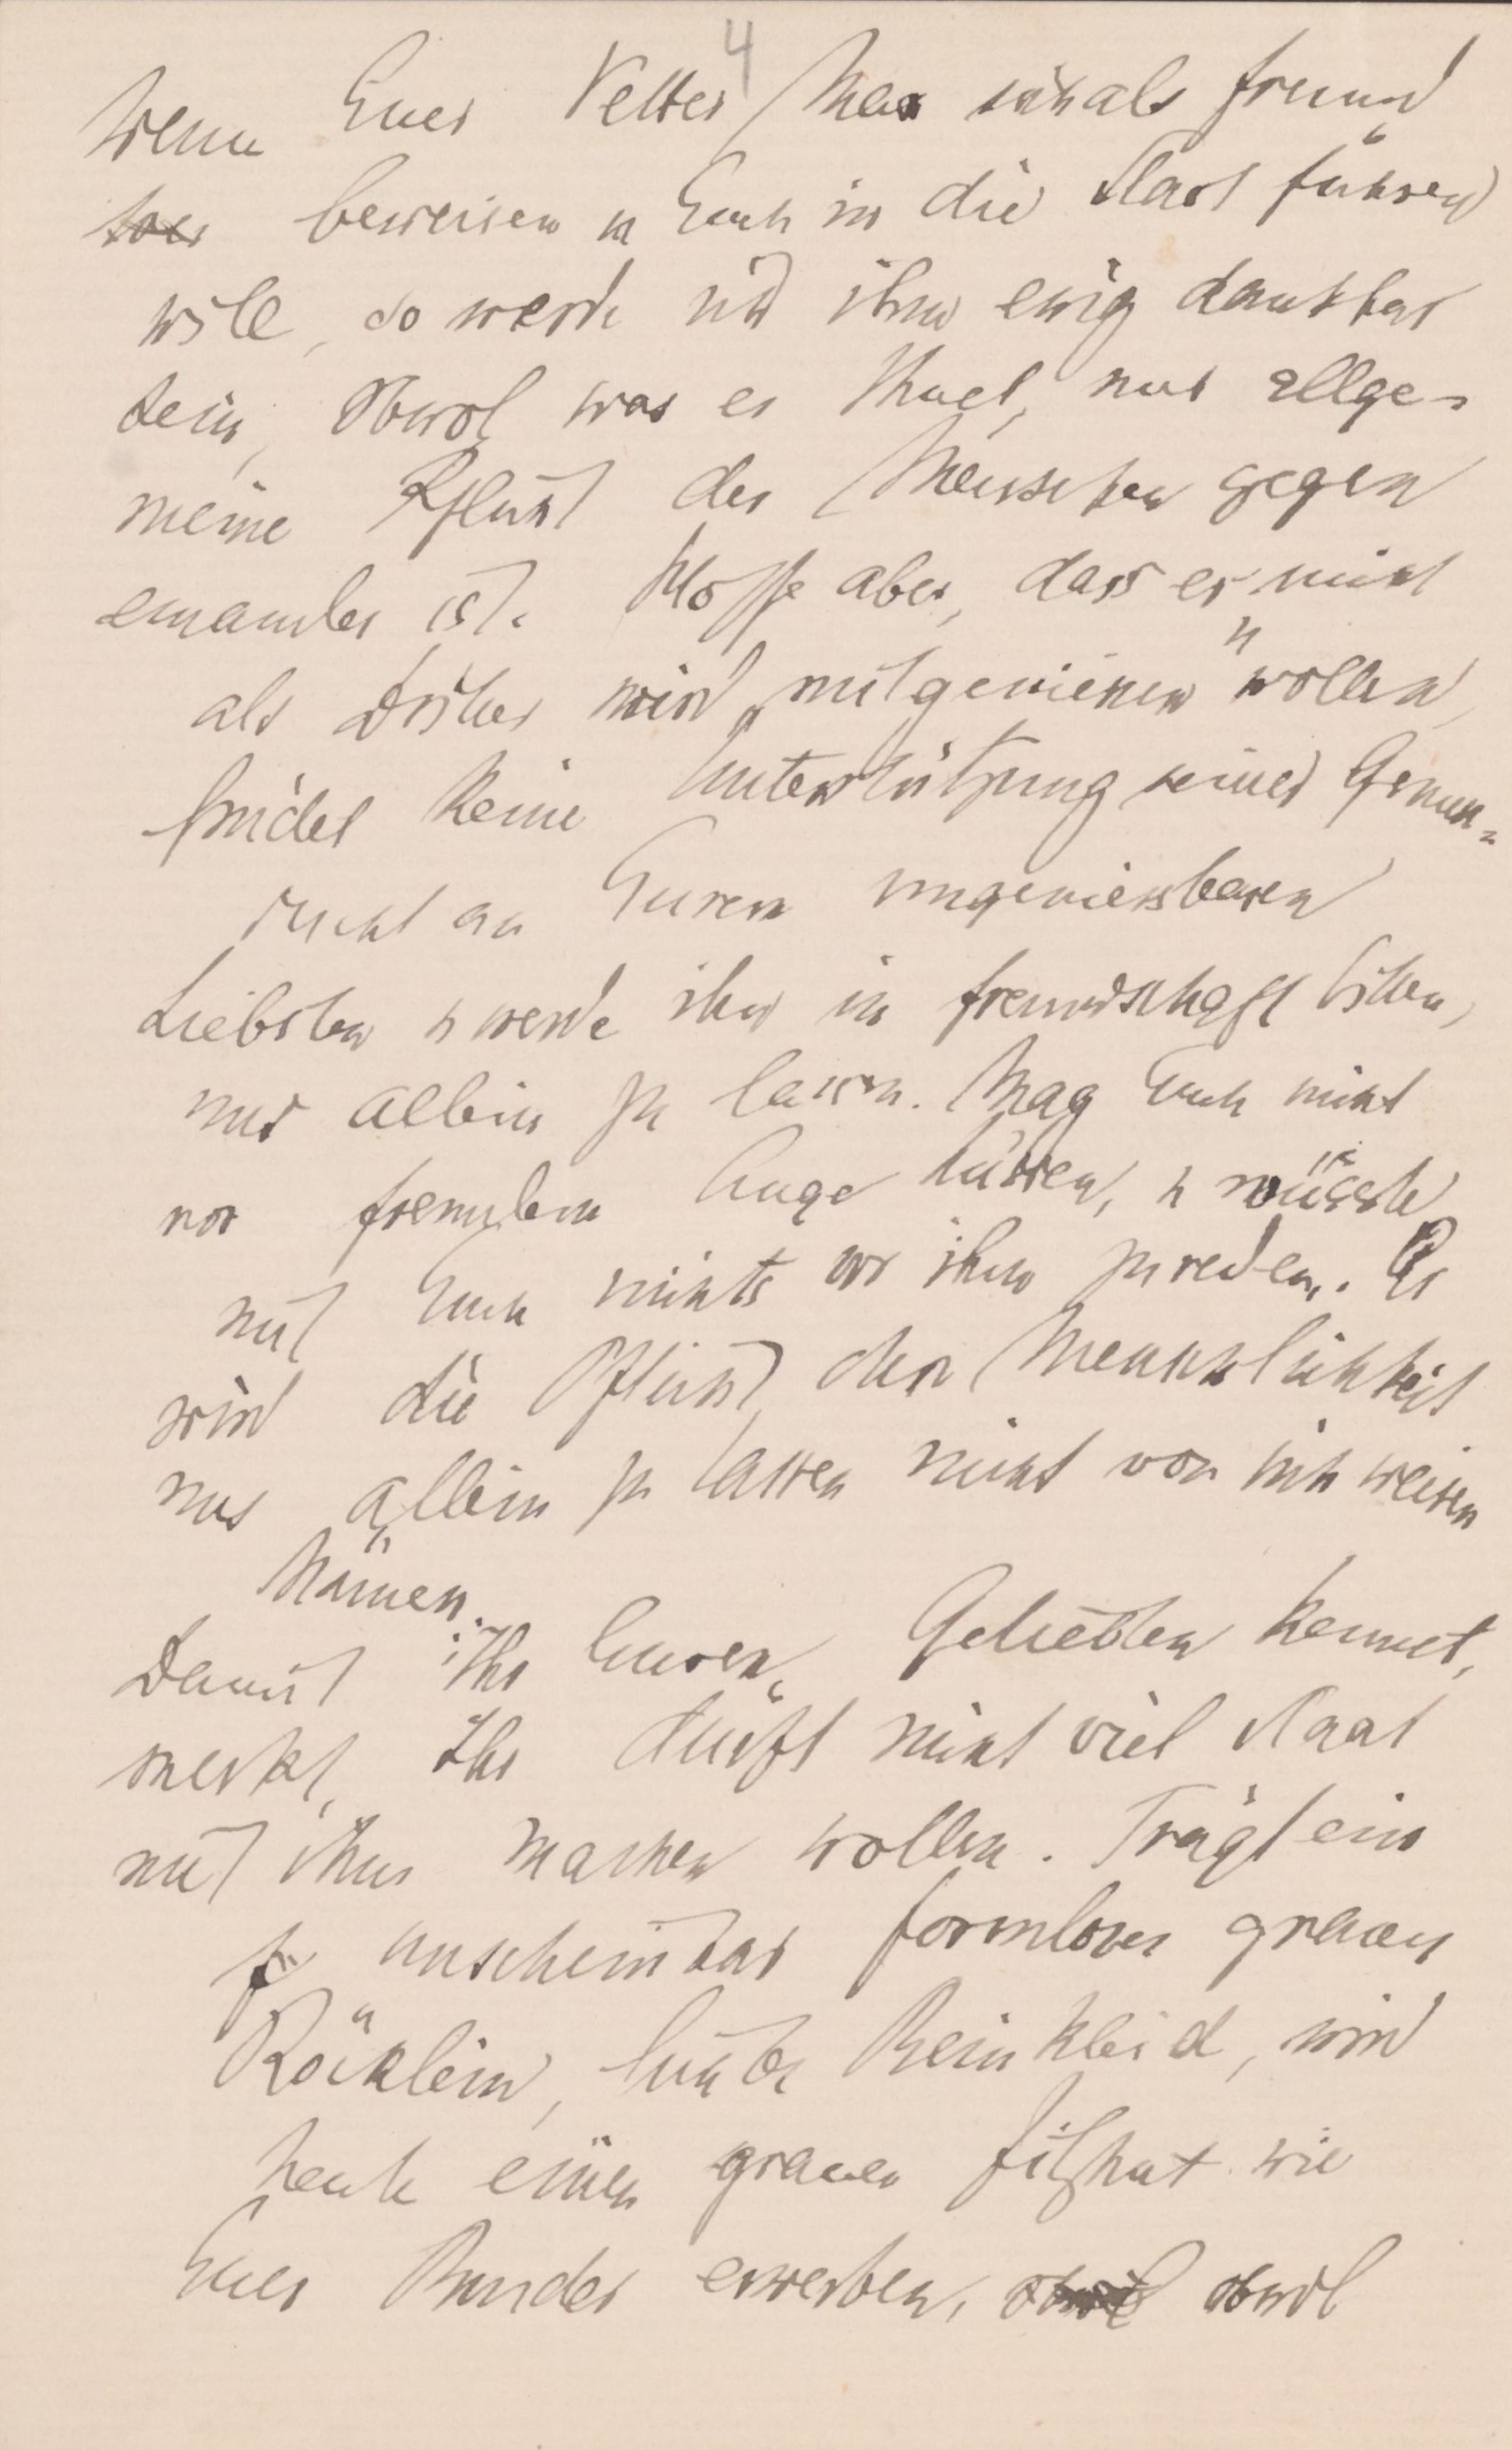 4
Wenn Euer Vetter Max sich als Freund
beweisen u Euch in die Stadt führen
will, so werde ich ihm ewig dankbar
sein, obwol was er thuet, nur allge-
meine Pflicht der Menschen gegen
einander ist. Hoffe aber, dass er nicht
als Dritter wird „mitgeniessen“ wollen,
findet keine Unterstützung seiner Genuss-
sucht an Eurem ungeniessbaren
Liebsten u werde ihn in Freundschaft bitten,
uns allein zu lassen. Mag Euch nicht
vor fremdem Auge küssen, u wüsste
mit Euch nichts vor ihm zu reden. Er
wird die Pflicht der Menschlichkeit
uns allein zu lassen nicht von sich weisen
können.
Damit Ihr Euren Geliebten kennet,
merkt, Ihr dürft nicht viel Staat
mit ihm machen wollen. Trägt ein
unscheinbar formloses graues
Röcklein, bunte Beinkleid, wird
heute einen grauen Filzhut wie
Euer Bruder erwerben, obwol